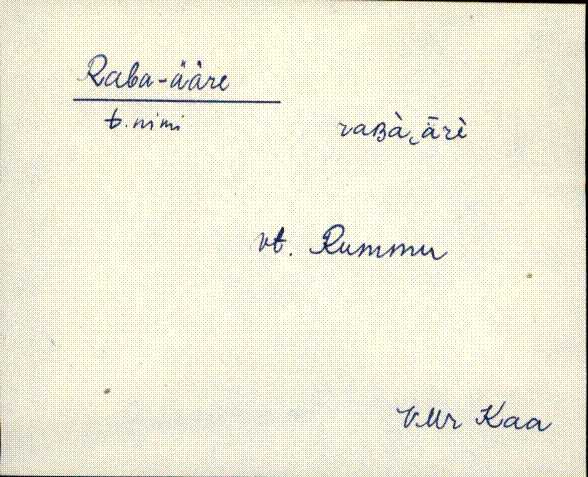 Raba-ääre
t. nimi
raʙà‿ārè
vt. Rummu
VMr Kaa